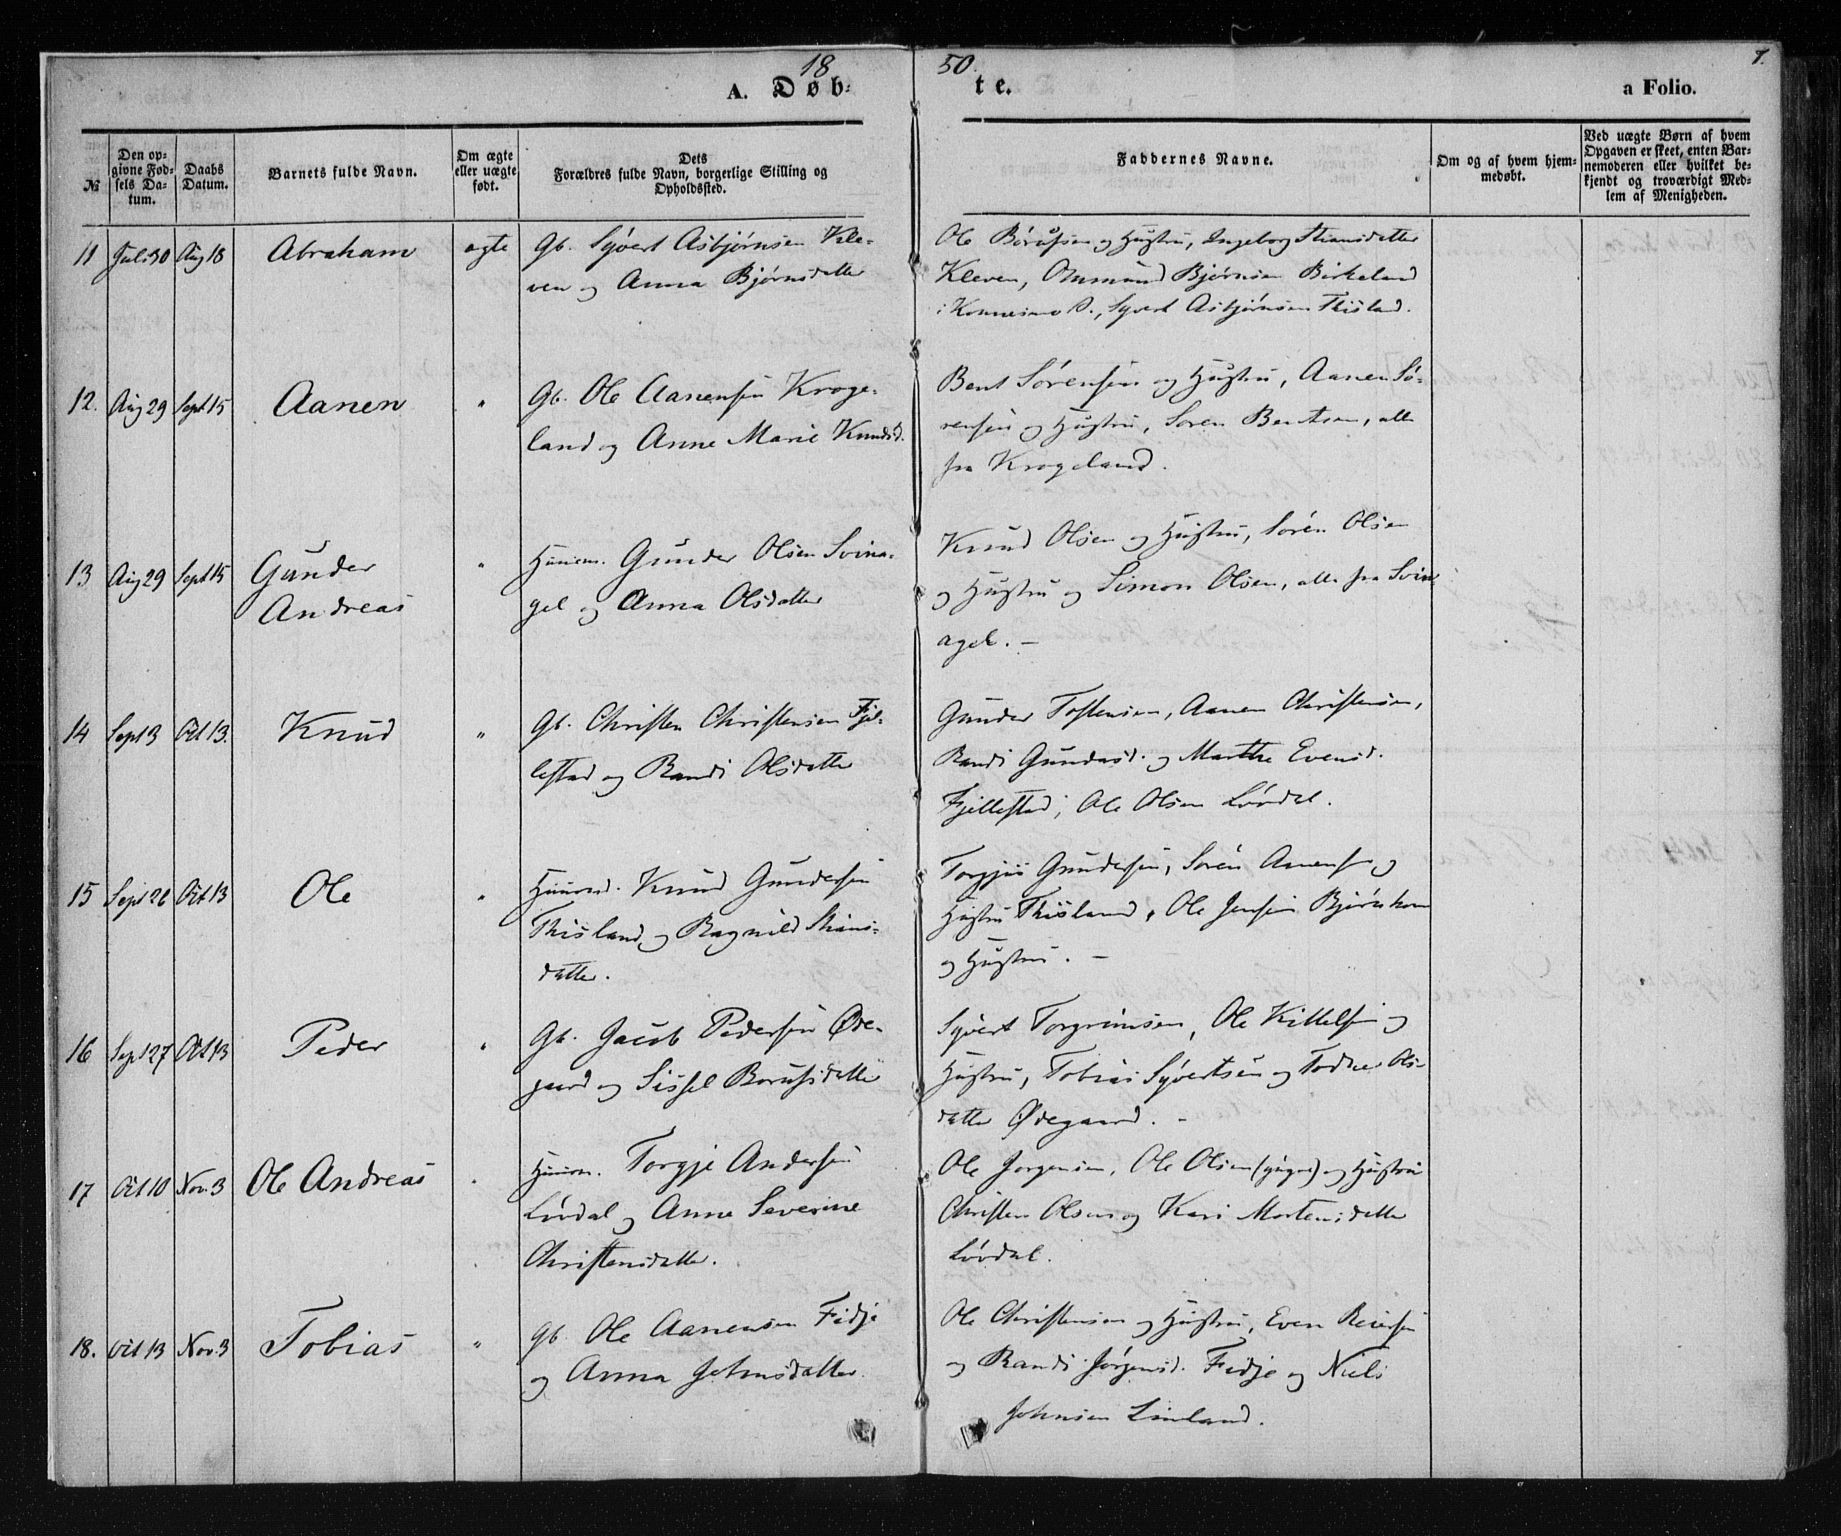 18 50. 1.
A. Døb- te. a Folio.
№
Den op-
givne Fød-
sels Da-
tum.
Daabs
Datum.
Barnets fulde Navn.
Om ægte
eller uægte
født.
Dets
Forældres fulde Navn, borgerlige Stilling og
Opholdssted.
Faddernes Navne.
Om og af hvem hjem-
medøbt.
Ved uægte Børn af hvem
Opgaven er skeet, enten Bar-
nemoderen eller hvilket be-
kjendt og troværdigt Med-
lem af Menigheden.
11 Juli 30 Aug 18 Abraham ægte Gb. Syvert Asbjørnsen Kle-
ven og Anna Bjørnsdatter
Ole Børufsen og Hustru, Ingeborg
Kleven, Ommund Bjørnsen Birkeland
i, Syvert Asbjørnsen Thisland.
12. Aug 29 Sept 15 Aanen " Gb. Ole Aanensen Kroge-
land og Anne Marie Knudsd.
Bent Sørensen og Hustru, Aanen Sø-
rensen og Hustru, Søren Bentsen, alle
fra Krogeland.
13 Aug 29 Sept 15 Gunder
Andreas
" Huusm. Gunder Olsen Svina-
gel og Anna Olsdatter
Knud Olsen og Hustru, Søren Olsen
og Hustru og Simon Olsen, alle fra Svin
agel. –
14 Sept 3 Oct 13. Knud " Gb. Christen Christensen Fjel-
lestad og Randi Olsdatter
Gunder Tostensen, Aanen Christensen,
Randi Gundersd. og Marthe Evensd.
Fjellestad, Ole Olsen Løvdal.
15 Sept 26 Oct 13 Ole " Huusm. Knud Gundersen
Thisland og Ragnild
datter.
Torgjus Gundersen, Søren Aanensen og
Hustru Thisland, Ole Jensen Bjørnkom
og Hustru. –
16 Sept 27 Oct 13 Peder " Gb. Jacob Pedersen Øde-
gaard og Sissel Borufsdatter
Syvert Torgrimsen, Ole Kittelsen og
Hustru, Tobias Syvertsen og Ols-
datter Ødegaard. –
17 Oct 10 Nov. 3 Ole Andreas " Huusm. Torgje Andersen
Løvdal og Anne Severine
Christensdatter.
Ole Jørgensen, Ole Olsen (yngre) og Hustru
Christen Olsen og Kari Mortensdatter
Løvdal.
18. Oct 13 Nov. 3 Tobias " Gb. Ole Aanensen Fidje
og Anna Johnsdatter.
Ole Christensen og Hustru, Even Reiersen
og Randi Jørgensd. Fidje og Niels
Johnsen Linland.